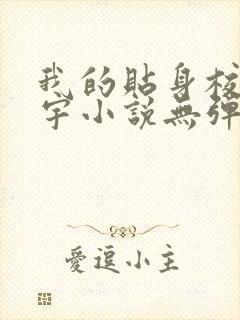 我的貼身校
宇小說無彈
愛逗小主